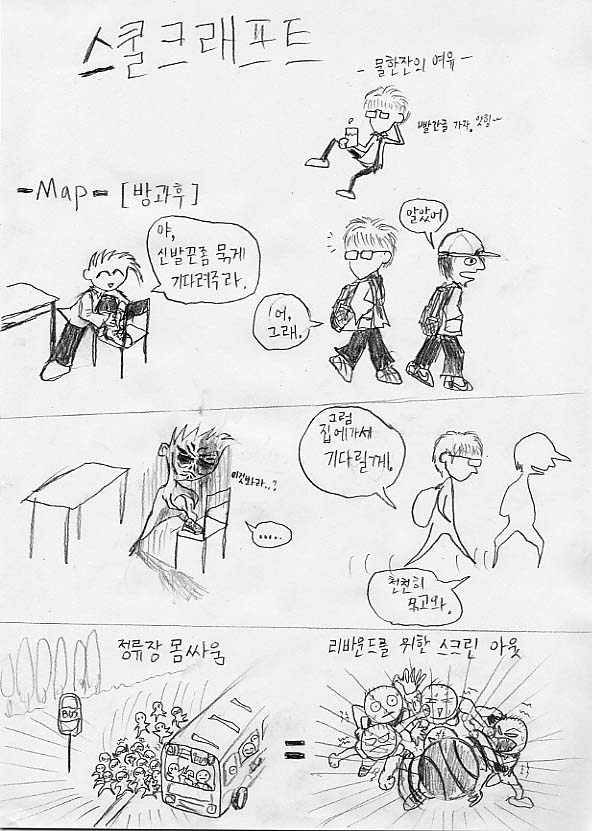 스쿨크래프트
- 물한잔의 여유 -
빨간클 가자. 잇힝~
-Map- [방과후]
야,
신발끈좀 묶게
기다려주라.
알았어
어,
그래.
그럼
집에가서
기다릴께.
이것봐라..?
.....
천천히
묶고와.
정류장 몸싸움
리바운드를 위한 스크린 아웃
BUS
=